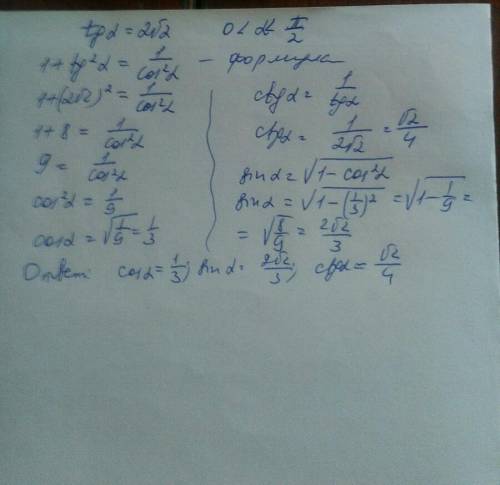 tgα = 2√2 0 < α < π/2
1 + tg²α = 1/cos²α – формула
1 + (2√2)² = 1/cos²α
1 + 8 = 1/cos²α
9 = 1/cos²α
cos²α = 1/9
cosα = √1/9 = 1/3
ctgα = 1/tgα
ctgα = 1/2√2 = √2/4
sinα = √1 - cos²α
sinα = √1 - (1/3)² = √1 - 1/9 =
= √8/9 = 2√2/3
Ответ: cosα = 1/3; sinα = 2√2/3; ctgα = √2/4